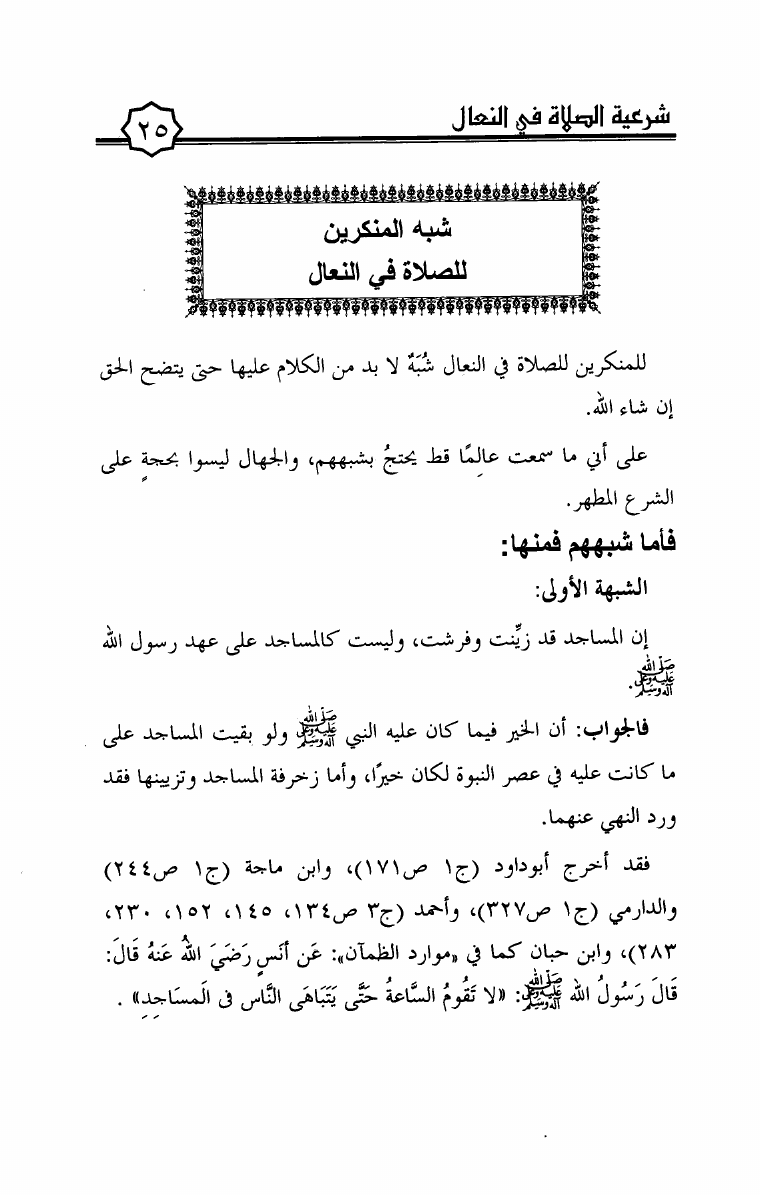 شرعية الصلاة في النعال
٢٥
شبه المنكرين
للصلاة في النعال
للمنكرين للصلاة في النعال شُبَهٌ لا بد من الكلام عليها حتى يتضح الحق
إن شاء الله.
على أني ما سمعت عالِمًا قط يحتجُ بشبههم، والجهال ليسوا بحجةٍ على
الشرع المطهر.
فأما شبههم فمنها:
الشبهة الأولى:
إن المساجد قد زيِّنت وفرشت، وليست كالمساجد على عهد رسول الله
صلى الله عليه وعلى آله وسلم.
فالجواب: أن الخير فيما كان عليه النبي صلى الله عليه وعلى آله وسلم ولو بقيت المساجد على
ما كانت عليه في عصر النبوة لكان خيرًا، وأما زخرفة المساجد وتزيينها فقد
ورد النهي عنهما.
فقد أخرج أبوداود (ج١ ص١٧١)، وابن ماجة (ج١ ص٢٤٤)
والدارمي (ج١ ص٣٢٧)، وأحمد (ج٣ ص١٣٤، ١٤٥، ١٥٢، ٢٣٠،
٢٨٣)، وابن حبان كما في «موارد الظمآن»: عَن أَنَسٍ رَضَيَ اللهُ عَنهُ قَالَ:
قَالَ رَسُولُ الله صلى الله عليه وعلى آله وسلم: «لا تَقُومُ السَّاعةُ حَتَّى يَتَبَاهَى النَّاس فى الَمسَاجِدِ» .